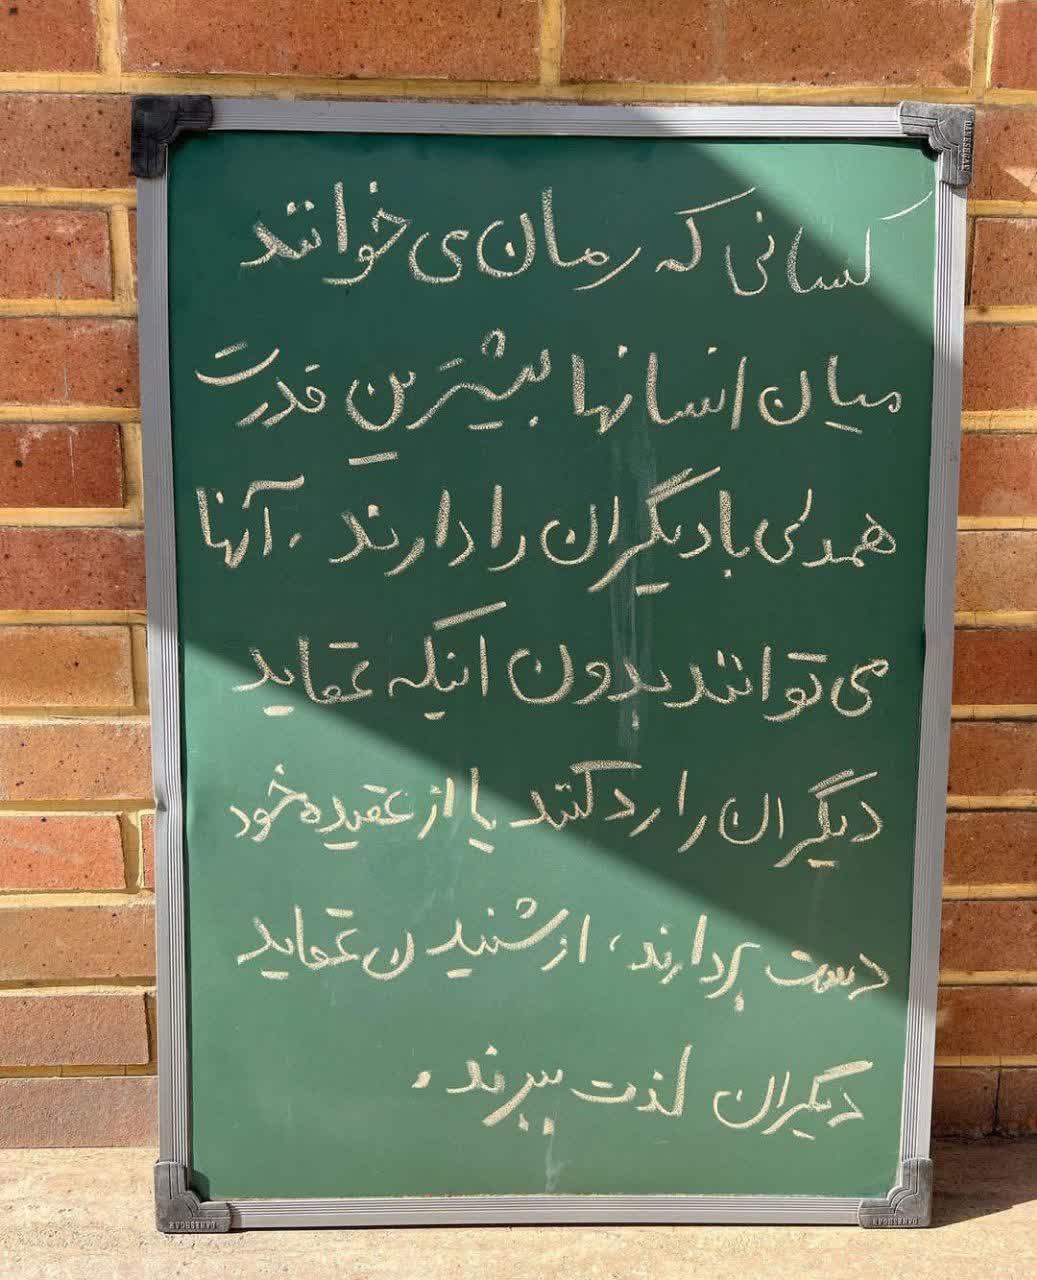 کسانی که رمان می خوانند
میان انسانها بیشترین قدرت
همدلی با دیگران را دارند. آنها
می توانند بدون اینکه عقاید
دیگران را رد کنند یا از عقیده خود
دست بردارند، از شنیدن عقاید
دیگران لذت ببرند.
DANESHGAR
DANESHGAR
DANESHGAR